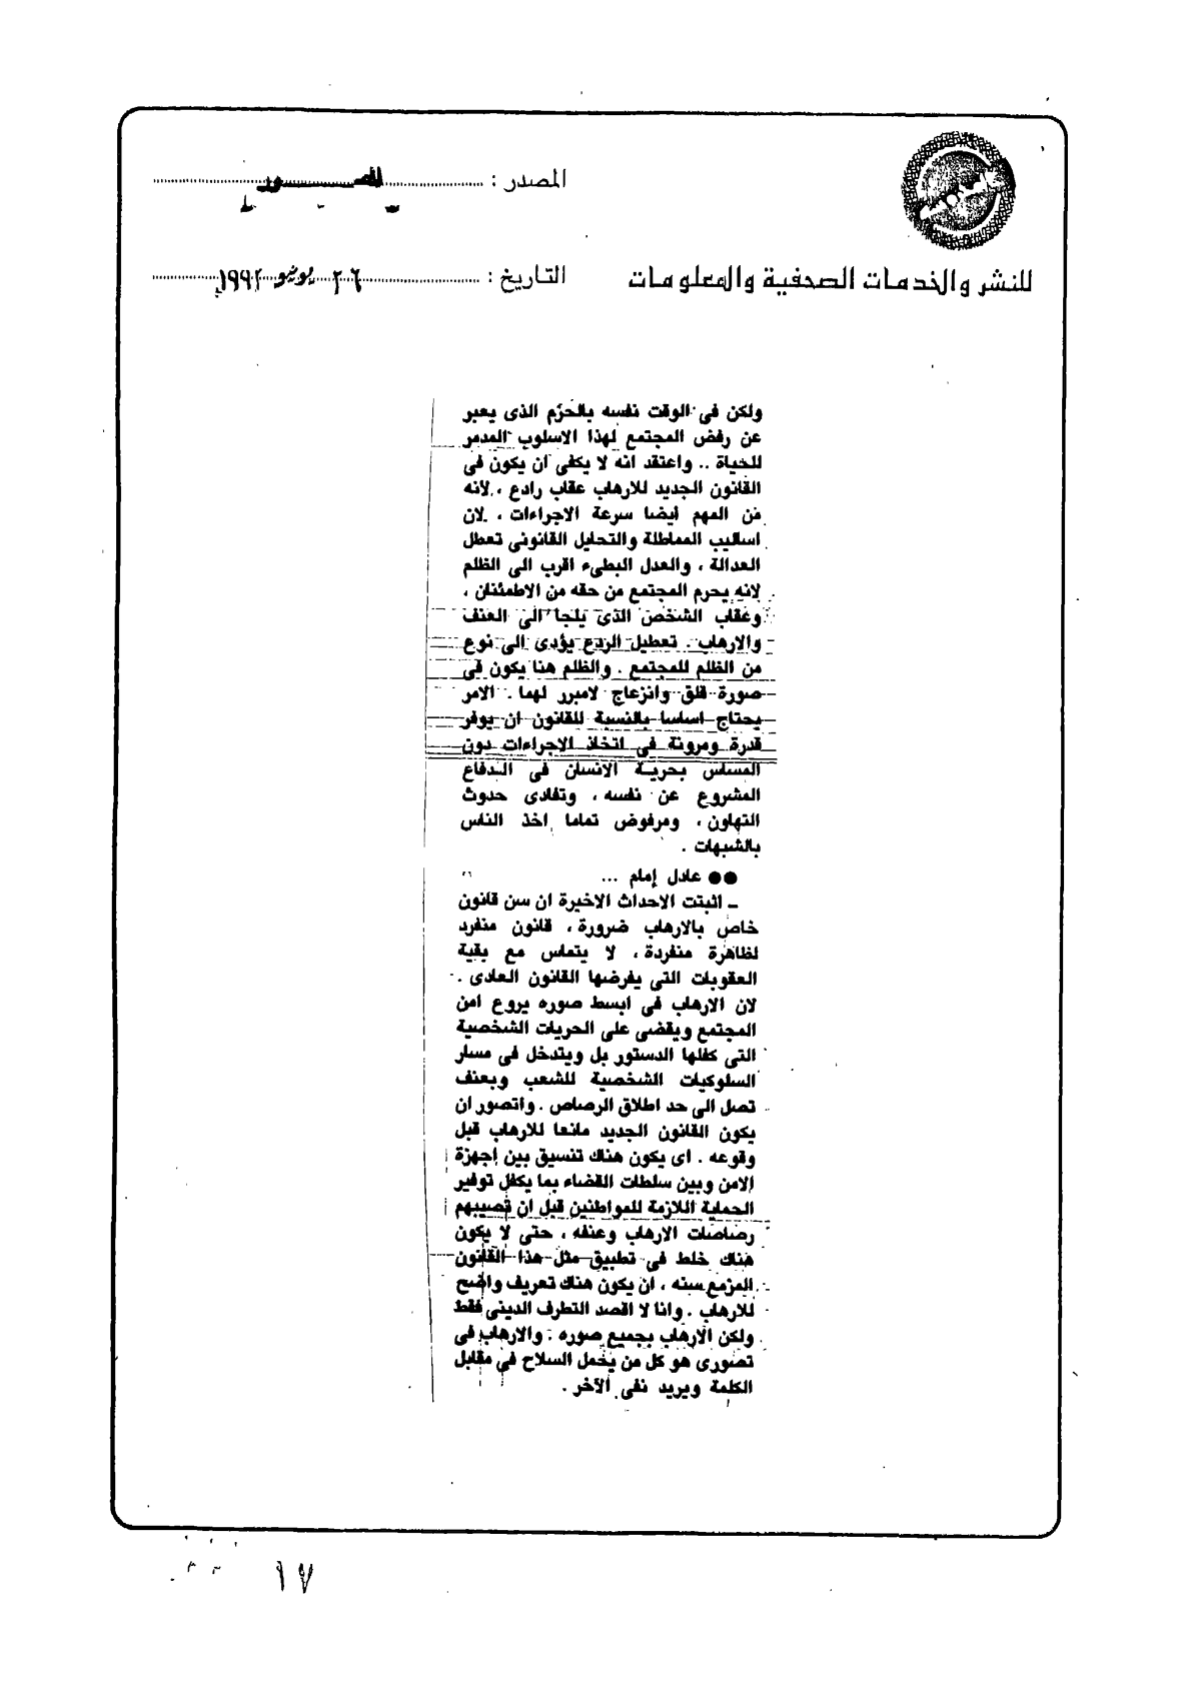 المصدر : المصور
للنشر والخدمات الصحفية والمعلومات
التاريخ : ٢٦ يونيو ١٩٩٢
ولكن فى الوقت نفسه بالحزم الذى يعبر
عن رفض المجتمع لهذا الاسلوب المدمر
للحياة .. واعتقد انه لا يكفى ان يكون فى
القانون الجديد للارهاب عقاب رادع ، لانه
من المهم ايضا سرعة الاجراءات ، لان
اساليب المماطلة والتحايل القانونى تعطل
العدالة ، والعدل البطىء اقرب الى الظلم
لانه يحرم المجتمع من حقه من الاطمئنان ،
وعقاب الشخص الذى يلجا الى العنف
والارهاب . تعطيل الردع يؤدى الى نوع
من الظلم للمجتمع . والظلم هنا يكون فى
صورة قلق وانزعاج لامبرر لهما . الامر
يحتاج اساسا بالنسبة للقانون ان يوفر
قدرة ومرونة فى اتخاذ الاجراءات دون
المساس بحرية الانسان فى الدفاع
المشروع عن نفسه ، وتفادى حدوث
التهاون ، ومرفوض تماما اخذ الناس
بالشبهات .
●● عادل إمام ...
ـ اثبتت الاحداث الاخيرة ان سن قانون
خاص بالارهاب ضرورة ، قانون منفرد
لظاهرة منفردة ، لا يتماس مع بقية
العقوبات التى يفرضها القانون العادى .
لان الارهاب فى ابسط صوره يروع امن
المجتمع ويقضى على الحريات الشخصية
التى كفلها الدستور بل ويتدخل فى مسار
السلوكيات الشخصية للشعب وبعنف
تصل الى حد اطلاق الرصاص . واتصور ان
يكون القانون الجديد مانعا للارهاب قبل
وقوعه . اى يكون هناك تنسيق بين اجهزة
الامن وبين سلطات القضاء بما يكفل توفير
الحماية اللازمة للمواطنين قبل ان تصيبهم
رصاصات الارهاب وعنفه ، حتى لا يكون
هناك خلط فى تطبيق مثل هذا القانون
المزمع سنه ، ان يكون هناك تعريف واضح
للارهاب . وانا لا اقصد التطرف الدينى فقط
ولكن الارهاب بجميع صوره : والارهاب فى
تصورى هو كل من يحمل السلاح فى مقابل
الكلمة ويريد نفى الآخر .
١٧